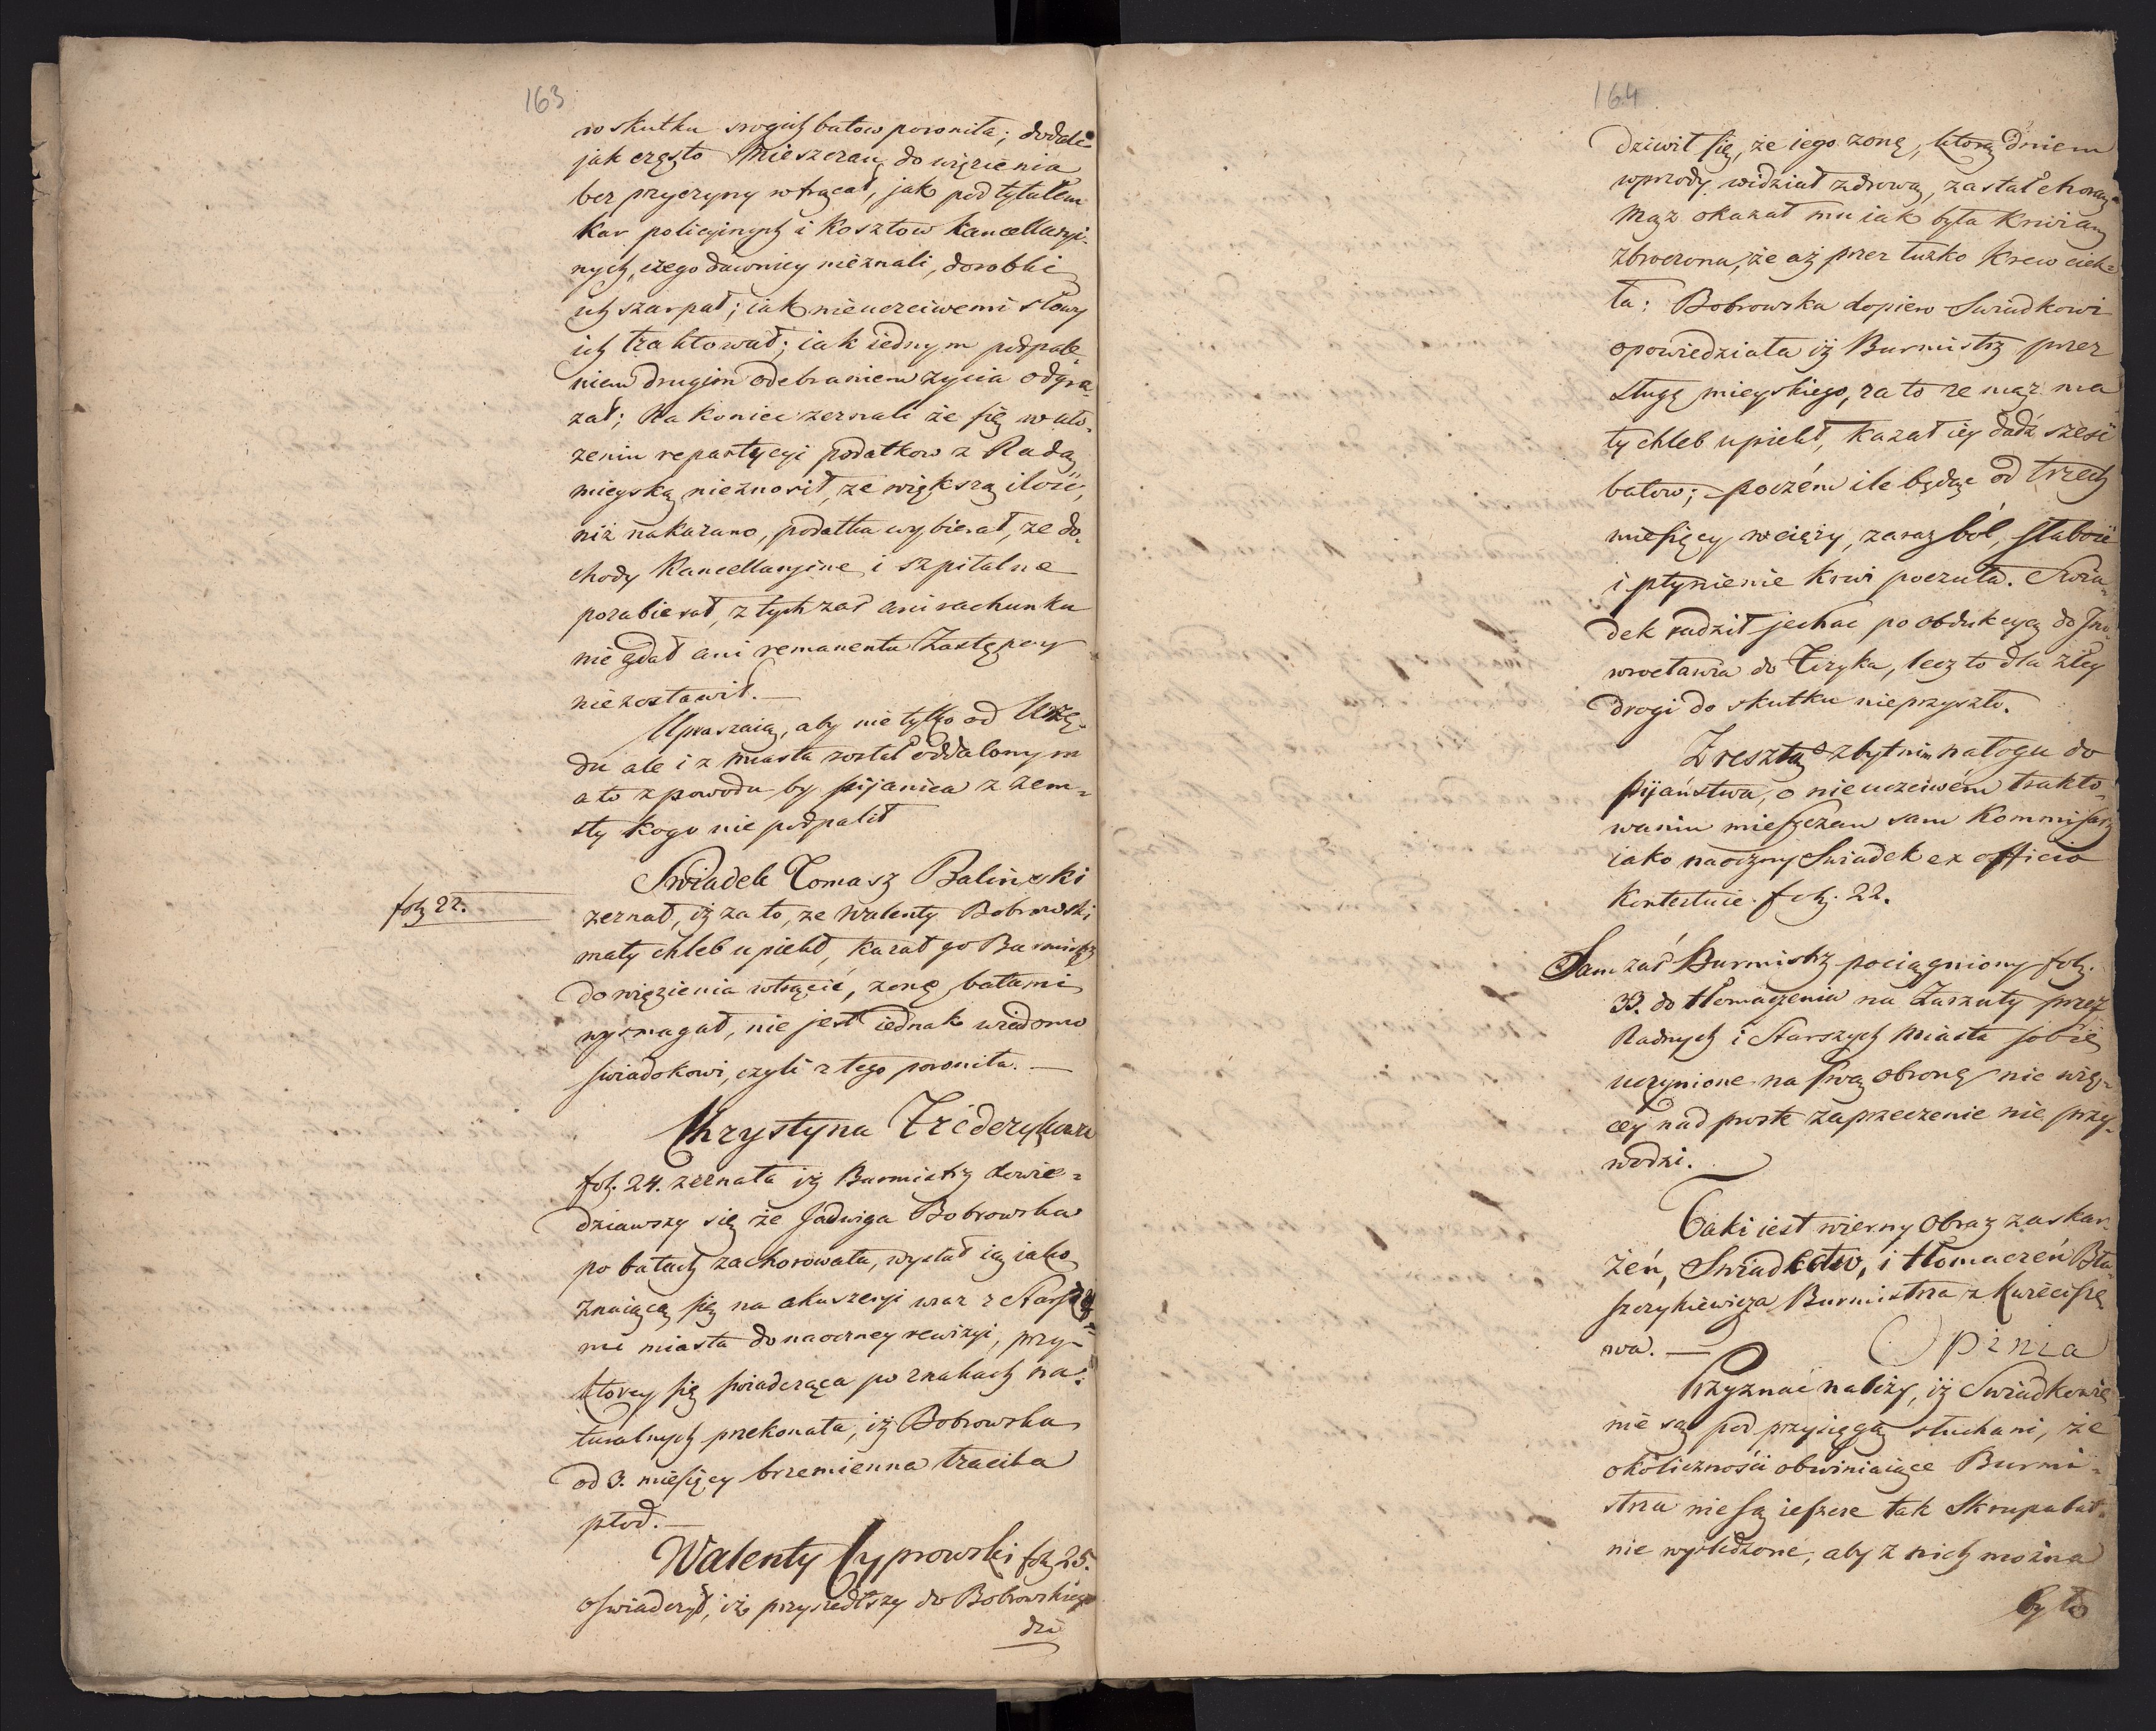 163
w skutku srogich batow poroniła; dodali
jak często Mieszczan do więzienia
bez przyczyny wtrącał, jak pod tytułem
kar policyinych i kosztow kancellaryi-
nych, czego dawniey nieznali, dorobki
ich szarpał; iak nieuczciwemi słowy
ich traktował; iak iednym podpale-
niem drugim odebraniem życia odgra-
zał; Na koniec zeznali że się w uło-
zeniu repartycyi podatkow z Radą
mieyską nieznosił, ze większą ilość,
niż nakazano, podatku wybierał, ze do-
chody Kancellaryine i szpitalne
pozabierał, z tych zaś ani rachunku
nie zdał ani remanentu Zastępcy
niezostawił. —
Upraszaią, aby nie tylko od Urzę-
du ale i z miasta został oddalonym
a to z powodu by pijanica z zem-
sty kogo nie podpalił
Swiadek Tomasz Baliński
fol: 22.
zeznał, iż za to, ze Walenty Bobrowski
mały chleb upiekł, kazał go Burmistrz
do więzienia wtrącić, żonę batami
wysmagał, nie jest iednak wiadomo
swiadokowi, czyli z tego poroniła. —
Krystyna Fridrykowa
fol. 24. zeznała iż Burmistrz dowie-
dziawszy się że Jadwiga Bobrowska
po batach zachorowała, wysłał ią iako
znaiącą się na akuszeryi wraz z Starszy-
mi miasta do naoczney rewizyi, przy
ktorey się swiadcząca po znakach na-
turalnych przekonała, iż Bobrowska
od 3. miesięcy brzemienna traciła
płod. —
Walenty Cyprowski fol: 25.
oswiadczył, iż przyszedłszy do Bobrowskiego
dzi
164
dziwił się, że iego zonę, ktorą dniem
wprzody widział zdrową, zastał chorą
Mąż okazał mu iak była krwią
zbroczona, że aż przez łużko krew ciek-
ła: Bobrowska dopiero Swiadkowi
opowiedziała iż Burmistrz przez
sługę mieyskiego, za to ze mąz ma
ły chleb upiekł, kazał iey dadź sześć
batow; poczém ile będąc od trzech
miesięcy w ciąży, zaraz ból, słabość
i płynienie krwi poczuła. Swia-
dek radził jechac po obdukcyą do Ino
wrocławia do Fizyka, lecz to dla złey
drogi do skutku nieprzyszło.
Zresztą o zbytnim nałogu do
pijaństwa, o nieuczciwém trakto-
waniu mieszczan sam Kommisarz
iako naoczny Swiadek ex officio
Kontestuie. fol: 22.
Sam zaś Burmistrz pociągniony fol:
33. do tłomaczenia na Zarzuty przez
Radnych i Starszych Miasta sobie
uczynione na swą obronę nic wię-
cey nad proste zaprzeczenie nie przy-
wodzi.
Taki iest wierny obraz zaskar-
żeń, Swiadectw, i tłomaczeń Bła-
szczykiewicza Burmistrza z Kwieciszę
wa. — Opinia
Przyznac należy, iż Swiadkowie
nie są pod przysięgą słuchani, że
okoliczności obwiniaiące Burmi-
strza nie są ieszcze tak skrupulat-
nie wyśledzone, aby z nich można
było